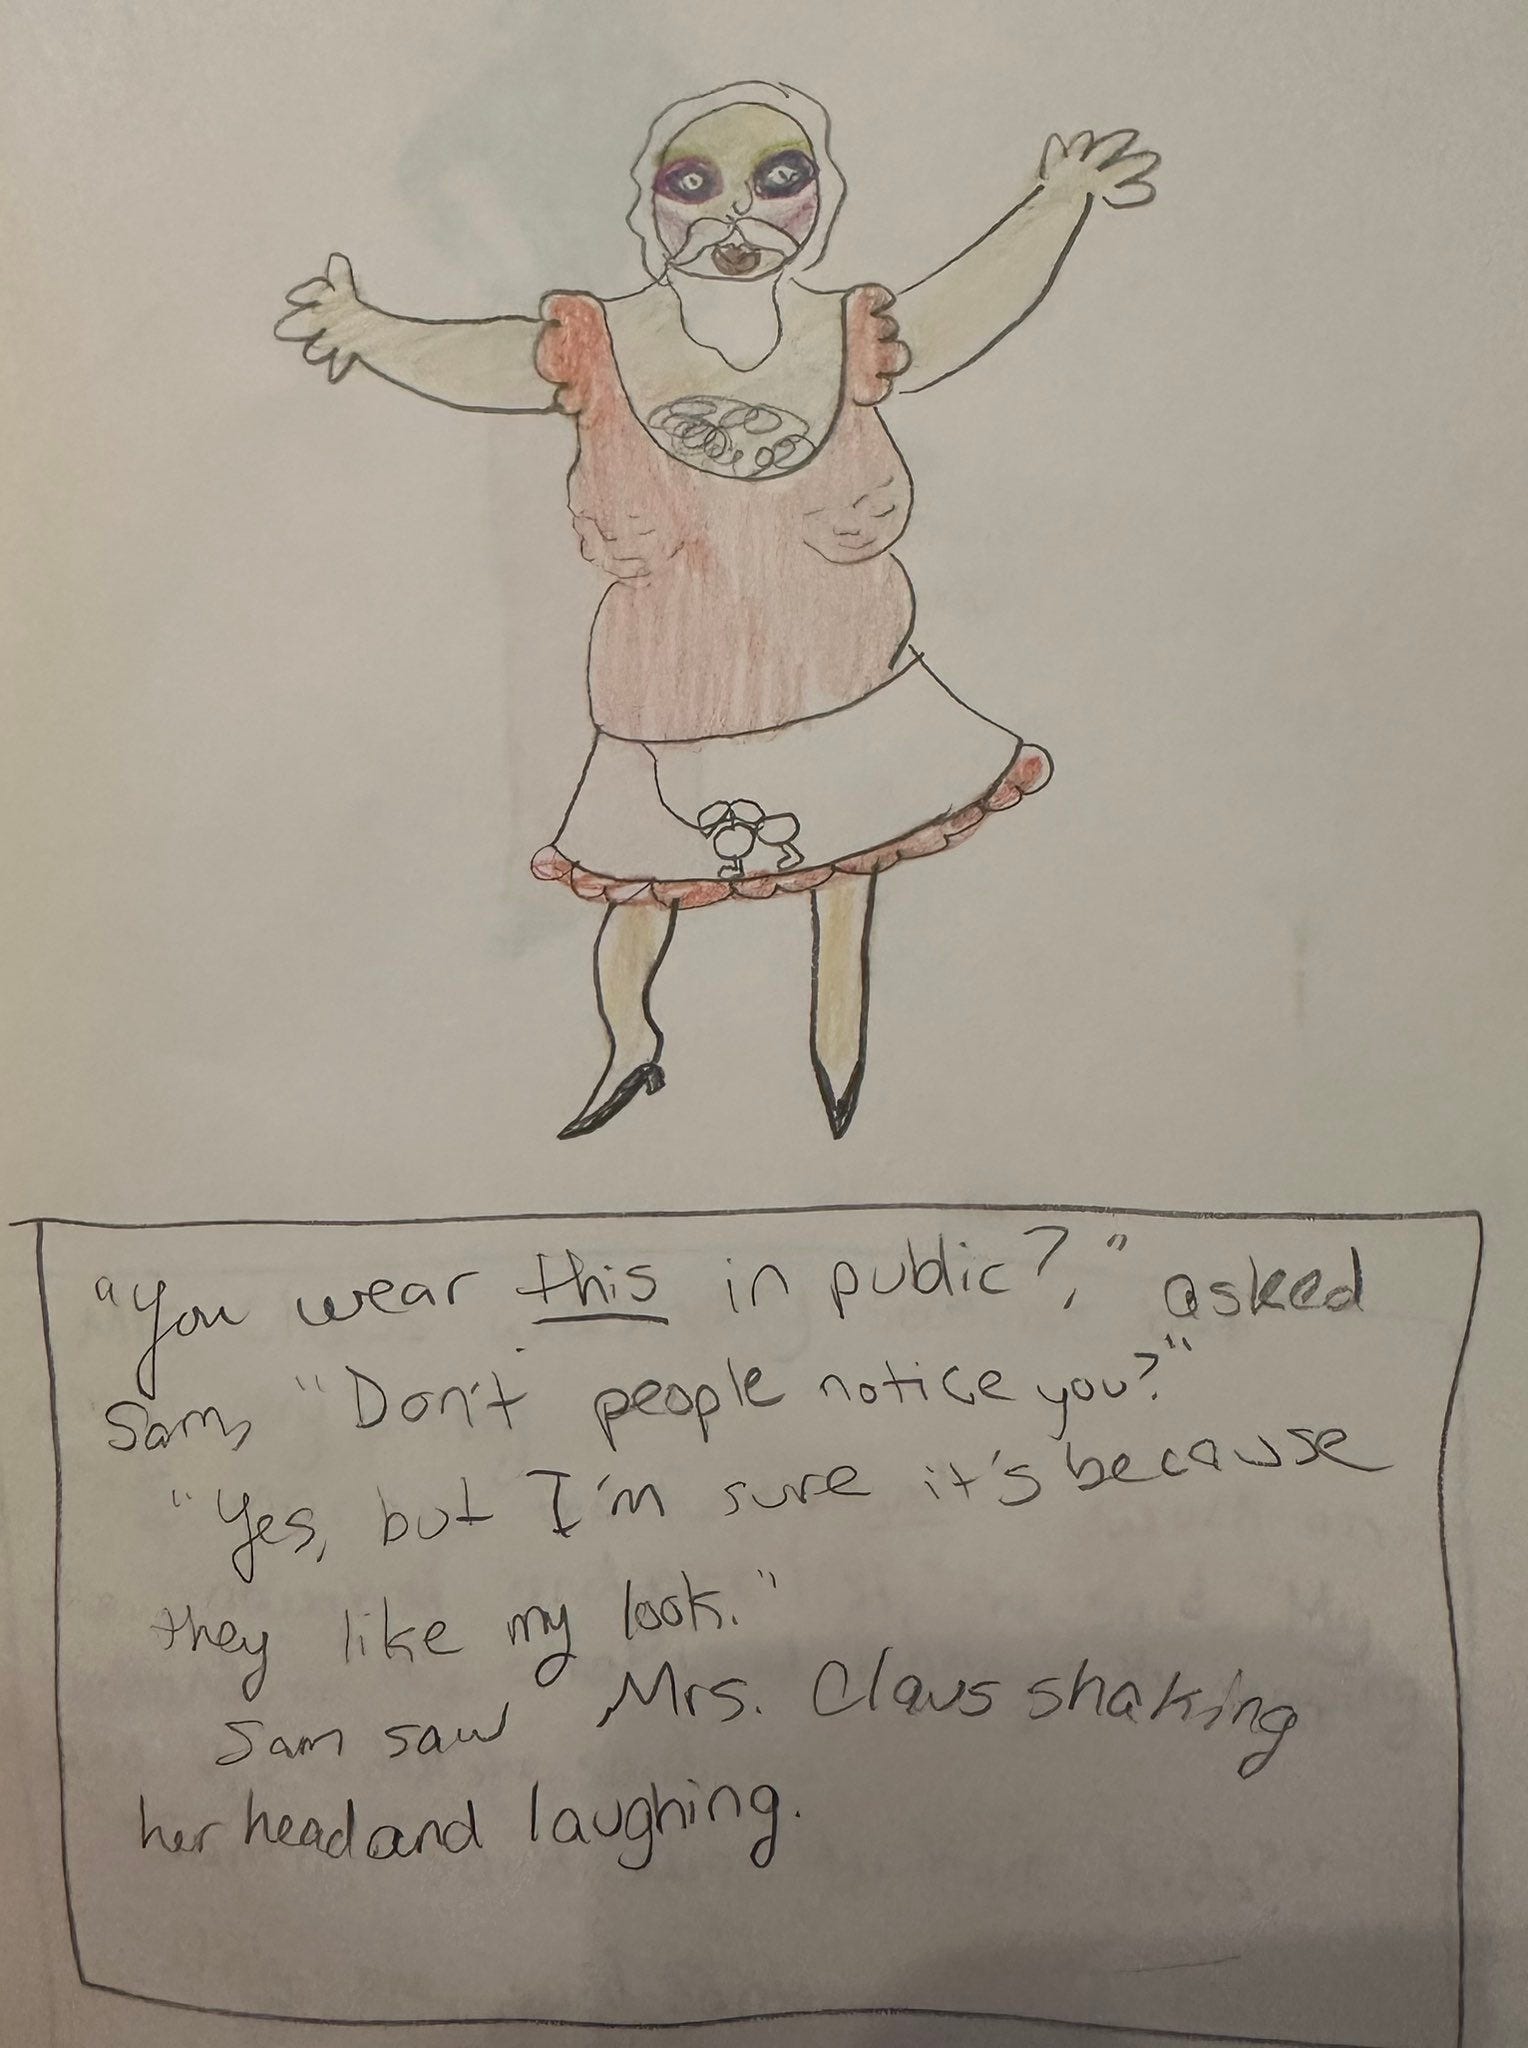 "You wear this in public?," asked
Sam, "Don't people notice you?"
"Yes, but I'm sure it's because
they like my look."
Sam saw Mrs. Claus shaking
her head and laughing.